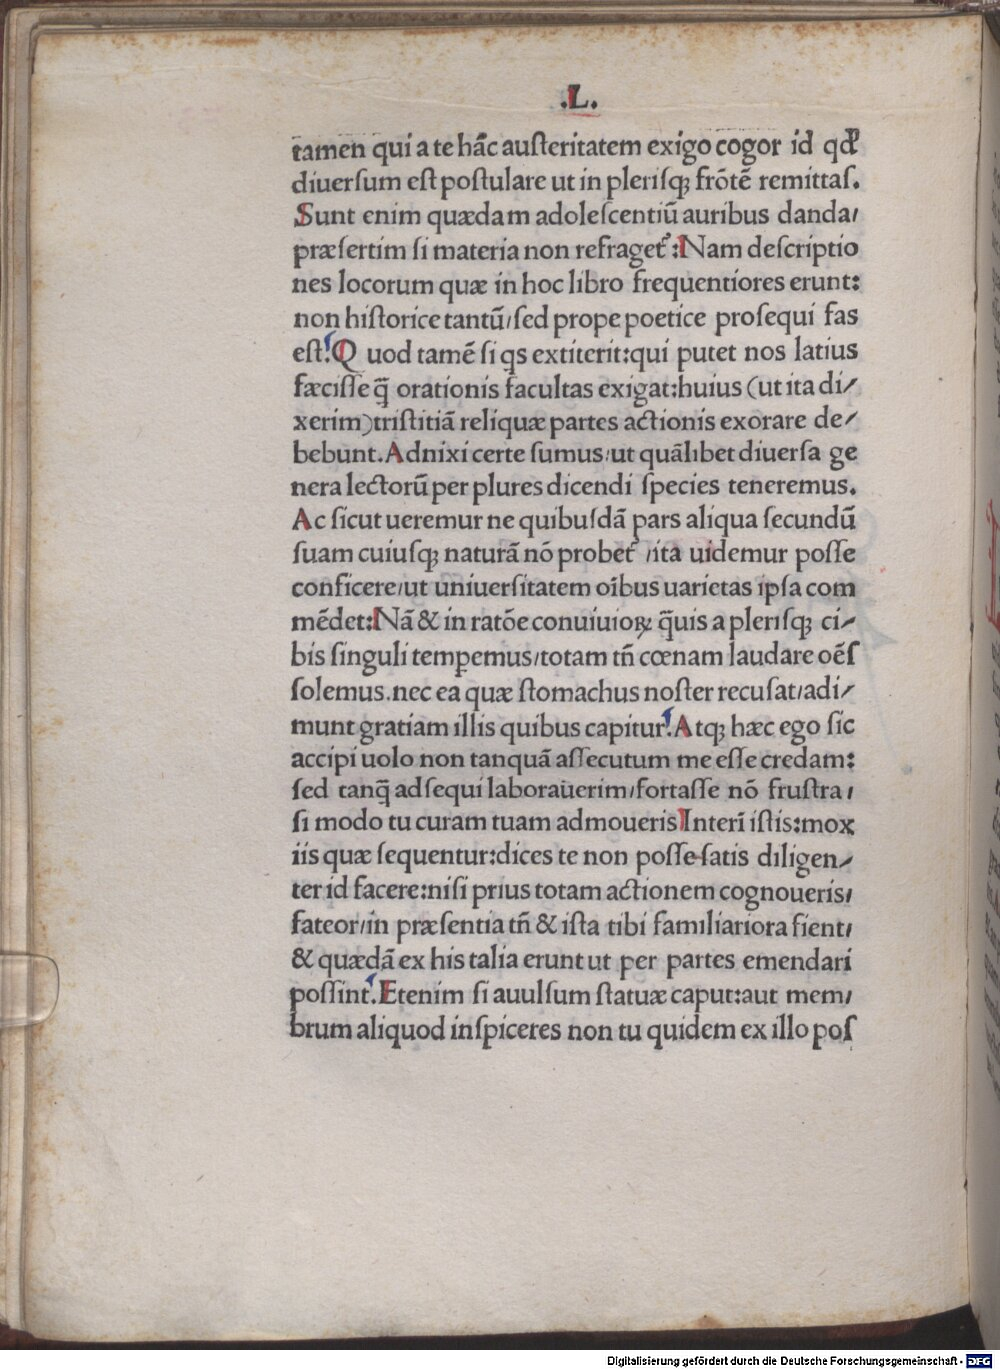 .L.
tamen qui a te hāc auſteritatem exigo cogor id qđ
diuerſum eſt poſtulare ut in pleriſqꝫ frōtē remittaſ.
Sunt enim quædam adoleſcentiū auribus danda/
præſertim ſi materia non refraget᷑:Nam deſcriptio
nes locorum quæ in hoc libro frequentiores erunt:
non hiſtorice tantū/ſed prope poetice proſequi fas
eſt.Quod tamē ſi qs extiterit:qui putet nos latius
fæciſſe q̄ orationis facultas exigat:huius (ut ita di/
xerim)triſtitiā reliquæ partes actionis exorare de/
bebunt.Adnixi certe ſumus/ut quālibet diuerſa ge
nera lectorū per plures dicendi ſpecies teneremus.
Ac ſicut ueremur ne quibuſdā pars aliqua ſecundū
ſuam cuiuſqꝫ naturā nō probet᷑ /ita uidemur poſſe
conficere/ut uniuerſitatem oībus uarietas ipſa com
mēdet:Nā & in ratōe conuiuioꝝ q̄uis a pleriſqꝫ ci/
bis ſinguli tempemus/totam tn̄ cœnam laudare oēſ
ſolemus.nec ea quæ ſtomachus noſter recuſat/adi/
munt gratiam illis quibus capitur.Atqꝫ hæc ego ſic
accipi uolo non tanquā aſſecutum me eſſe credam:
ſed tanq̄ adſequi laborauerim/fortaſſe nō fruſtra/
ſi modo tu curam tuam admoueris Interī iſtis:mox
iis quæ ſequentur:dices te non poſſe ſatis diligen/
ter id facere:niſi prius totam actionem cognoueris/
fateor/in præſentia tn̄ & iſta tibi familiariora fient/
& quædā ex his talia erunt ut per partes emendari
poſſint.Etenim ſi auulſum ſtatuæ caput:aut mem/
brum aliquod inſpiceres non tu quidem ex illo poſ
Digitalisierung gefördert durch die Deutsche Forschungsgemeinschaft - DFG